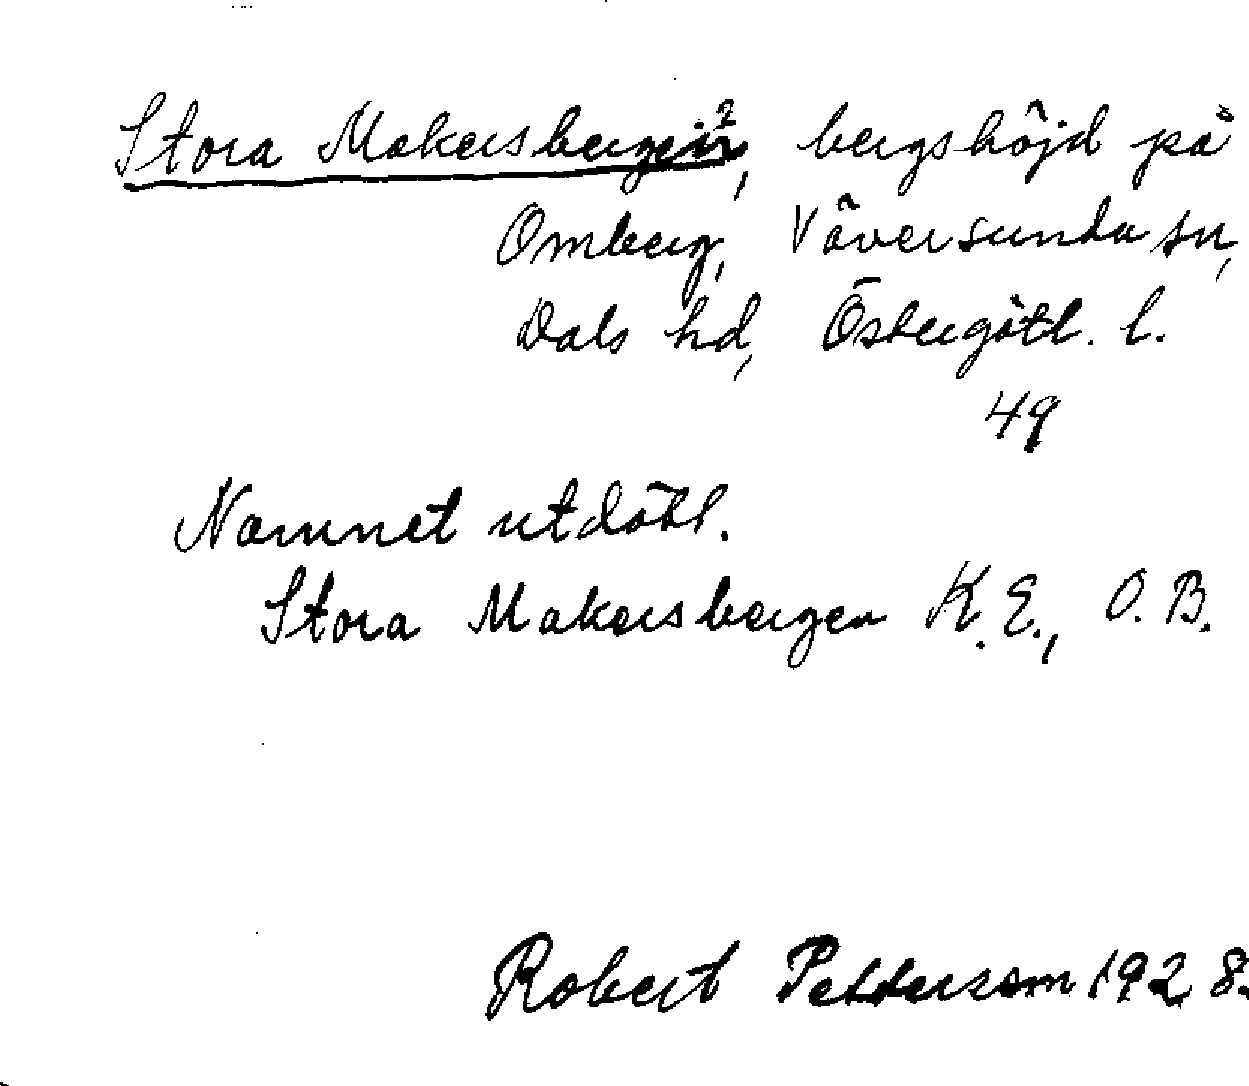 Stora Makersbergen, bergshöjd på
Omberg, Väversunda sn,
Dals hd, Östergötl. l.
49
Namnet utdött.
Stora Makersbergen K.E., O.B.
Robert Pettersson 1928.